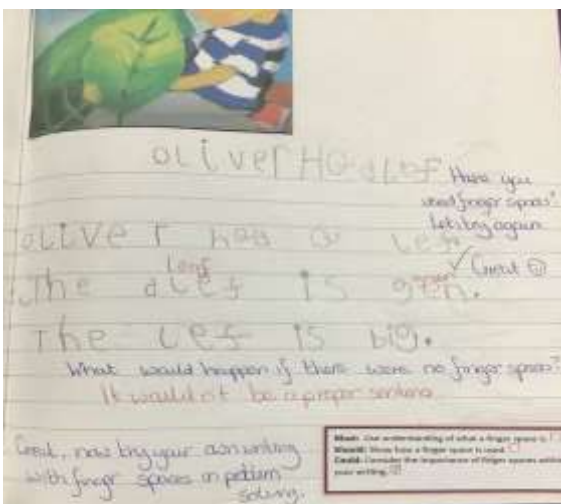 oLiver Ha a Lef
Have you
used finger spaces?
Let's try again
oLiver Had a Lef
Leaf
✓ Great ☺
The a Lef is green.
The Lef is big.
What would happen if there were no finger spaces?
It wouldn't be a proper sentence
Great, now try your own writing
with finger spaces in problem
solving.
Must: Use understanding of what a finger space is
Should: Show how a finger space is used
Could: Consider the importance of finger spaces within
your writing.